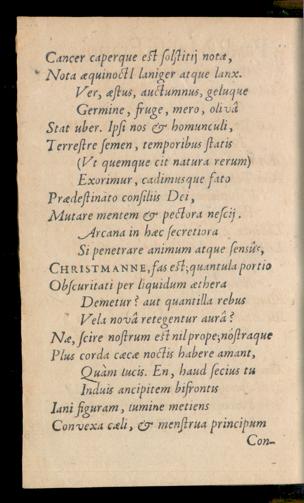 Cancer caperque eſt ſolſtitij nota,
Nota æquinoctI laniger atque lanx.
Ver, æſtus, auctumnus, geluque
Germine, fruge, mero, olivâ
Stat uber. Ipſi nos & homunculi,
Terreſtre ſemen, temporibus ſtatis
(Vt quemque cit natura rerum)
Exorimur, cadimusque fato
Prædeſtinato conſiliis Dei,
Mutare mentem & pectora neſcij.
Arcana in hæc ſecretiora
Si penetrare animum atque ſensûs,
CHRISTMANNE, fas eſt; quantula portio
Obſcuritati per liquidum æthera
Demetur? aut quantilla rebus
Vela novâ retegentur aurâ?
Næ, ſcire noſtrum eſt nil prope; noſtraque
Plus corda cæcæ noctis habere amant,
Quàm lucis. En, haud ſecius tu
Induis ancipitem bifrontis
Iani figuram, lumine metiens
Convexa cæli, & menſtrua principum
Con-